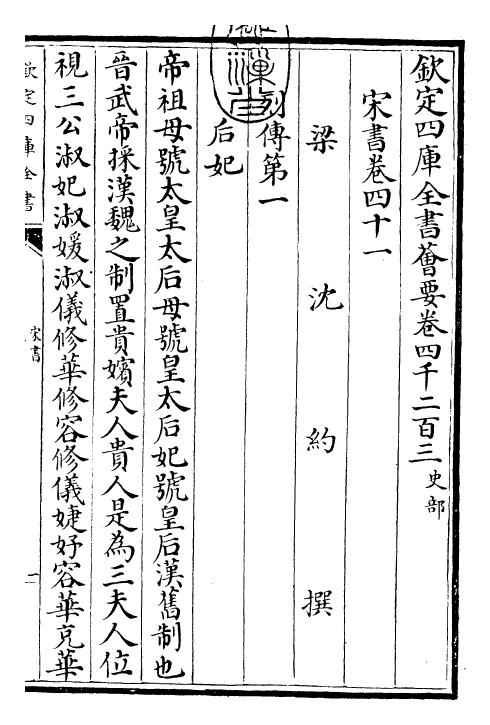 欽定四庫全書薈要卷四千二百三史部
宋書卷四十一
梁沈約撰
列傳第一
后妃
帝祖母號太皇太后母號皇太后妃號皇后漢舊制也
晉武帝採漢魏之制置貴嬪夫人貴人是為三夫人位
視三公淑妃淑媛淑儀修華修容修儀婕妤容華充華
欽定四庫全書
宋書
一